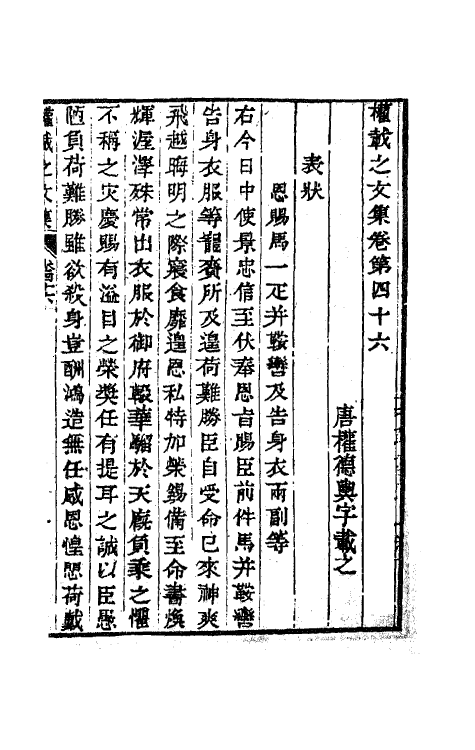 權載之文集卷第四十六
唐權德輿字載之
表狀
恩賜馬一疋并鞍轡及告身衣兩副等
右今日中使景忠信至伏奉恩旨賜臣前件馬并鞍轡
告身衣服等寵賚所及遑荷難勝臣自受命已來神爽
飛越晦明之際寢食靡遑恩私特加榮錫備至命書煥
輝渥澤殊常出衣服於御府輟華騮於天廐負乘之懼
不稱之灾慶賜有溢目之榮奬任有提耳之誠以臣愚
陋負荷難勝雖欲殺身豈酬鴻造無任感恩惶恩荷戴
權載之文集 卷四十六